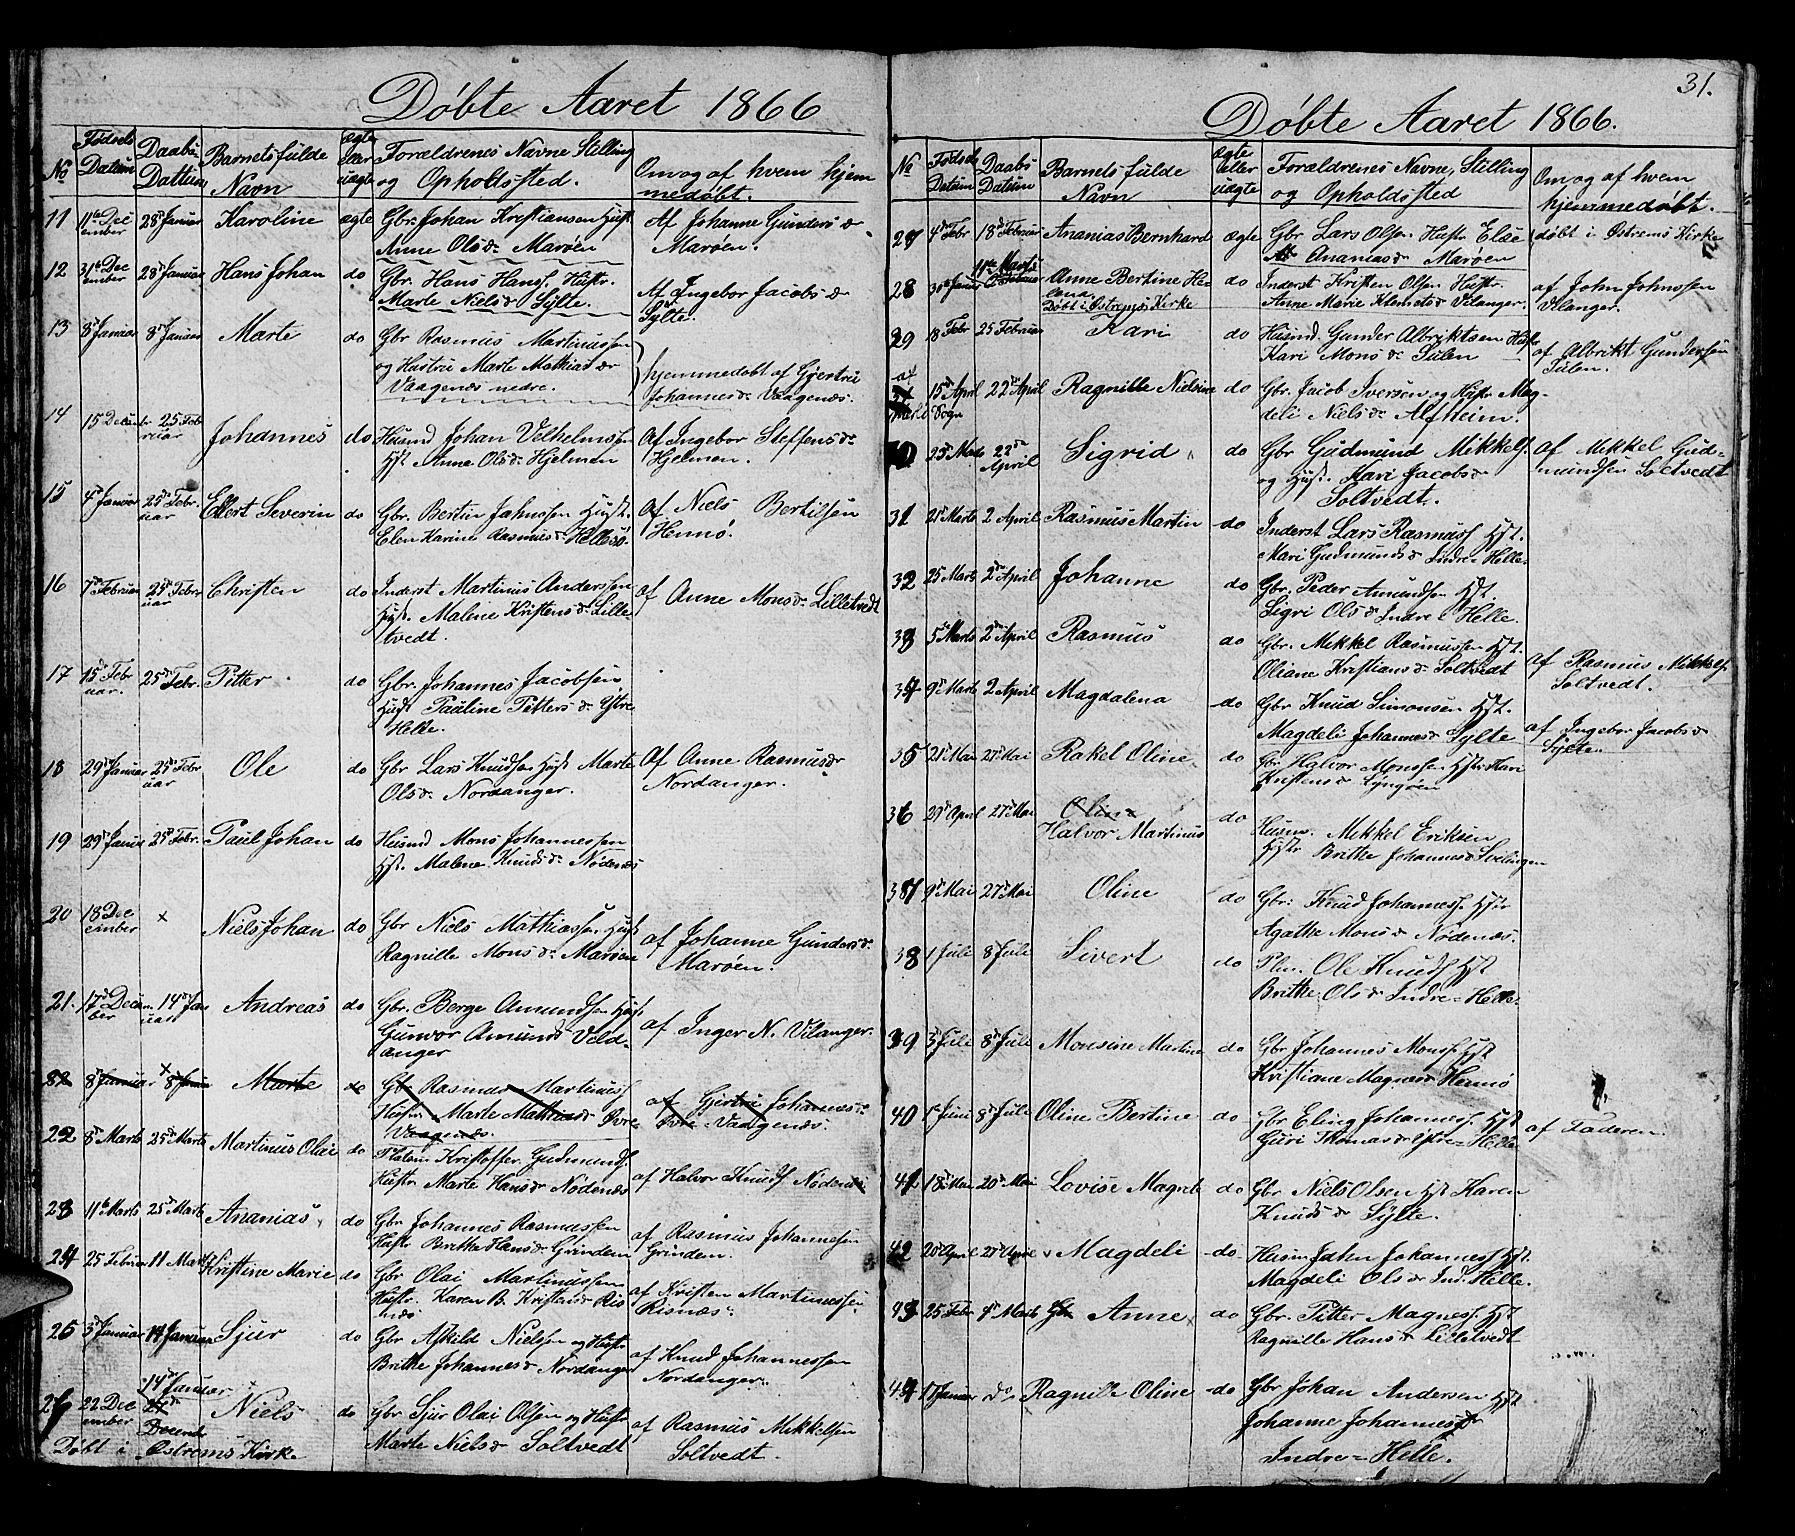 Døbte Aaret 1866
No Fødsels Datum Daabs Dattum Barnets fulde Navn ægte eller uægte Forældrenes Navne Stilling og Opholdssted. Om og af hvem hjemmedøbt.
11 11te December 28d Januar Karoline ægte Gbr. Johan Kristiansen Hust
Anne Olsd. Marøen Af Johanne Gundersd.
Marøen.
12 31te December 28d Januar Hans Johan do Gbr. Hans Hans. Hustr.
Marte Nielsd. Sylte. Af Ingebor Jacobsd.
Sylte.
13 8d Januar 8d Januar Marte do Gbr Rasmus Martinussen
og Hustru Marte Mathiasd.
Vaagenæs nedre. hjemmedøbt af Gjertrü
Johannesd. Vaagenæs.
14 15 December 25d Februar Johannes do Husmd Johan Velhelmssen
Hst. Anne Olsd. Hjelmen Af Ingebor Steffensd.
Hjelmen.
15 4d Januar 25d Februar Ellert Severin do Gbr. Bertin Jahnssen Hust
Elen Karine Rasmusd. Hellesø. Af Niels Bertilsen
Hennø.
16 7d Februar 25d Februar Christen do Inderst Martinus Anderssen
Hust. Malene Kristensd. Lille
tvedt. af Anne Monsd. Lilletvedt
17 15d Februar. 25d Febr. Pitter do Gbr. Johannes Jacobsen
Hust Pauline Pittersd. Ytre
Helle.
18 29d Januar 25d Februar Ole do Gbr Lars Knudsen Hust Marte
Olsd. Nordanger. Af Anne Rasmusd.
Nordanger.
19 29d Januar 25d Febr. Paul Johan do Husmd Mons Johannessen
Hst. Malene Knudsd. Nødenæs
20 18 December × Niels Johan do Gbr Niels Mathiassen Hust
Ragnille Monsd. Marøen af Johanne Gundersd.
Marøen.
21. 17d December 14d Januar Andreas do Gbr. Berge Amundsen Hust
Gunvor Amunds Veld-
anger af Inger N. Vilanger.
22 8d Januar × 8 Januar Marte do Gbr Rasmus Martinuss
Hustru Marte Mathiasd Øvre
Vaagenæs. af Gjertrü Johannesd.
Øvre Vaagenæs.
22 8d Marts 25d Marts Martinus Olai do Kristoffer Gudmunds.
Hustr Marte Hansd Nødenæs af Halvor Knuds Nødenæs
23 11te Marts 25d Marts Ananias do Gbr Johannes Rasmussen
Hustr Brithe Hansd Grindem af Rasmus Johannesen
Grindem.
24 25 Februar 11 Marts Kristine Marie do Gbr Olai Martinussen
Hustr. Karen B. Kristensd Ris
næs af Kristen Martinussen
Risnæs.
25 3d Januar 14 Januar Sjur do Gbr Askild Nielsen og Hustr
Brithe Johannesd Nordanger af Knud Johannessen
Nordanger.
14d Januar
26 22 December Decemb Niels do Gbr Sjur Olai Olsen og Hustr
Marte Nielsd Soltvedt af Rasmus Mikkelsen
Soltvedt.
Døbt i Østrems Kirke
31.
Døbte Aaret 1866.
No Fødsels Datum Daabs Datum Barnets fulde Navn ægte eller uægte Forældrenes Navne, Stilling og Opholdssted Om og af hvem hjemmedøbt.
27 4d Febr 18d Februar Ananias Bernhard ægte Gbr Lars Olsen Hustr Else
Ananiasd Marøen døbt i Østrems Kirke
28 30te Januar 11te Marts Anne Bertine He-
lena.
Døbt i Østrems Kirke do Inderst Kristen Olsen Hustr.
Anne Marie Klemetsd Vilanger. af John Johnssen
Vilanger.
29 18 Febr 25 Februar Kari do Husmd. Gunder Albriktsen Hustr
Kari Monsd. Sülen af Albrikt Gundersen
Sülen.
15d April 22de April Ragnille Nielsine do Gbr. Jacob Iversen og Hustr Mag-
deli Nielsd. Alfheim.
Sogn
30 25d Marts 22de April Sigrid do Gbr Gudmund Mikkels.
og Hust. Kari Jacobsd
Soltvedt. Af Mikkel Gud-
mundsen Soltvedt
31 21d Marts 2 April Rasmus Martin do Inderst Lars Rasmuss Hst.
Mari Gudmundsd Indre Helle.
32 25 Marts 2den April Johanne do Gbr. Peder Amundsen Hst.
Sigri Olsd Indre Helle.
33 5te Marts 2den April Rasmus do Gbr. Mikkel Rasmussen Hst.
Oliane Kristiansd Soltvedt af Rasmus Mikkels.
Soltvedt.
34 9d Marts 2 April Magdalena do Gbr Knud Simonsen Hst.
Magdeli Johannesd Sylte af Ingebor Jacobsd
Sylte.
35 21d Mai 27d Mai Rakel Oline do Gbr Halvor Monsen Hstr Kari
Kristensd Lyngøen
36 29d April 27d Mai Oline
Halvor Martinus do Husm. Mikkel Eriksen
Hstr Brithe Johannesd
37 9d Mai 27d Mai Oline do Gbr: Knud Johanness. Hstr
Agathe Monsd Nødenæs.
38 1 Juli 8d Juli Sivert do Ole Knuds Hst
Brithe Olsd Indre=Helle
39 3d Juli 8d Juli Monsine Martine do Gbr Johannes Monss Hst
Kristiane Magnesd Hennø
40 1d Juni 8d Juli Oline Bertine do Gbr Eling Johanness. Hst
Guri Thomasd Ytre=Helle af Faderen.
41 18d Mai 20d Mai Lovise Magrete do Gbr Niels Olsen Hst Karen
Knudsd Sylte.
42 20d April 27d April Magdeli do Husm Jahn Johanness Hst
Magdeli Olsd Ind. Helle.
43 25 Febr 4d Marts Gbr Anne do Gbr. Pitter Magness Hst
Ragnille Hansd Lilletvedt
44 17 Januar do Ragnille Oline do Gbr Johan Andersen Hst
Johanne Johannesd
Indre=Helle.